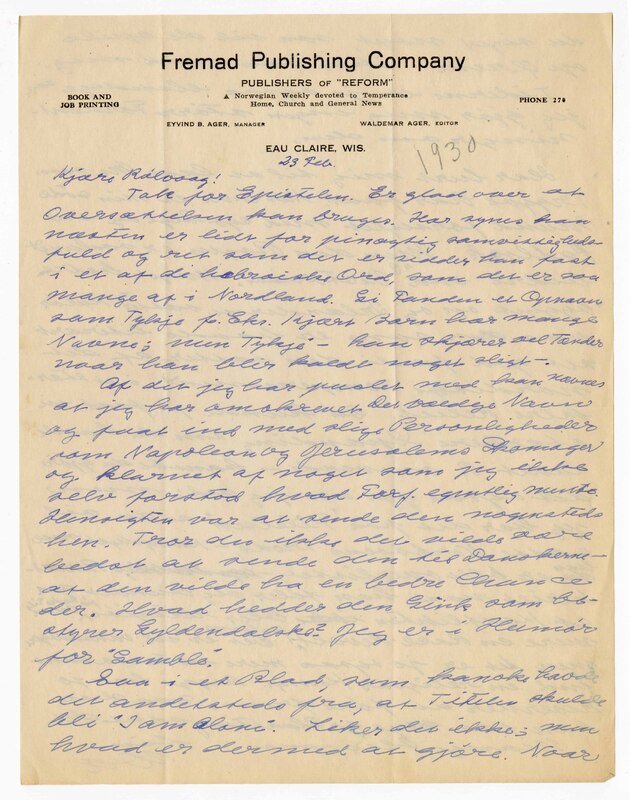 Fremad Publishing Company
PUBLISHERS OF "REFORM"
BOOK AND
JOB PRINTING
A Norwegian Weekly devoted to Temperance
Home, Church and General News
PHONE 270
EYVIND B. AGER, MANAGER
WALDEMAR AGER, EDITOR
EAU CLAIRE, WIS.
23 Feb.
1930
Kjære Rölvaag!
Tak for Epistelen. Er glad over at
Oversættelsen kan bruges. Har synes han
næsten er lidt for pinagtig samvittigheds-
fuld og ret som det er sidder han fast
i et af de hebraiske Ord, som det er saa
mange af i Nordland. Gi Fanden et Opnavn
som Tykje f. Eks. Kjært Barn har mange
Navne; men Tykje – han skjærer vel Tænder
naar han blir kaldt noget sligt –.
Af det jeg har puslet med kan nævnes
at jeg har omskrevet Det vældige Navn
og faat ind med slige Personligheder
som Napoleon og Jerusalems Skomager
og klarnet af noget som jeg ikke
selv forstod hvad Forf. egentlig mente.
Hensigten var at sende den nogensteds
hen. Tror du ikke det vilde være
bedst at sende den til Danskerne –
at den vilde ha en bedre Chance
der. Hvad hedder den Gink som be-
styrer Gyldendalske? Jeg er i Humör
for "Gamble".
Saa i et Blad, som kanske havde
det andetsteds fra, at Titelen skulde
bli "I am Alone". Liker det ikke; men
hvad er dermed at gjöre. Naar